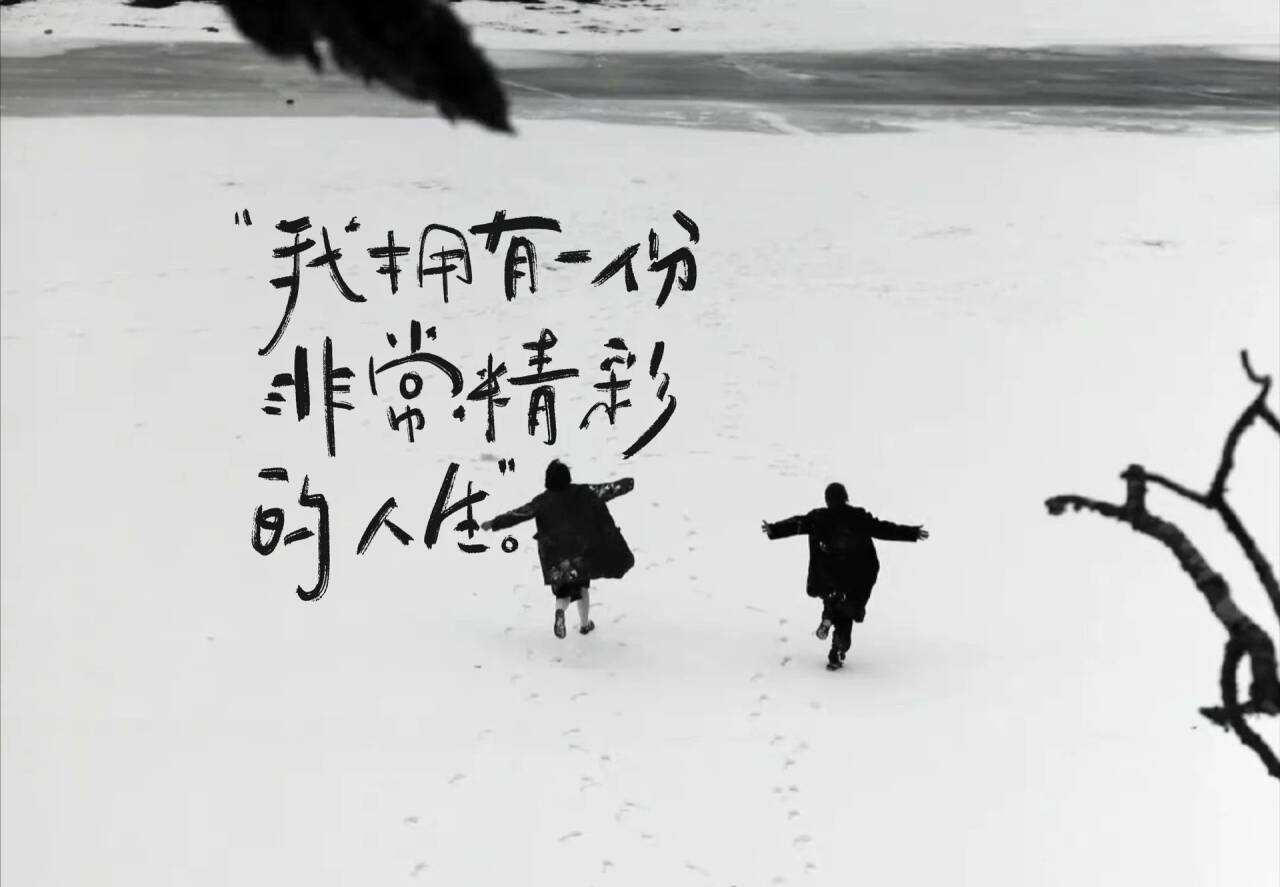 “我拥有一份
非常精彩
的人生”。